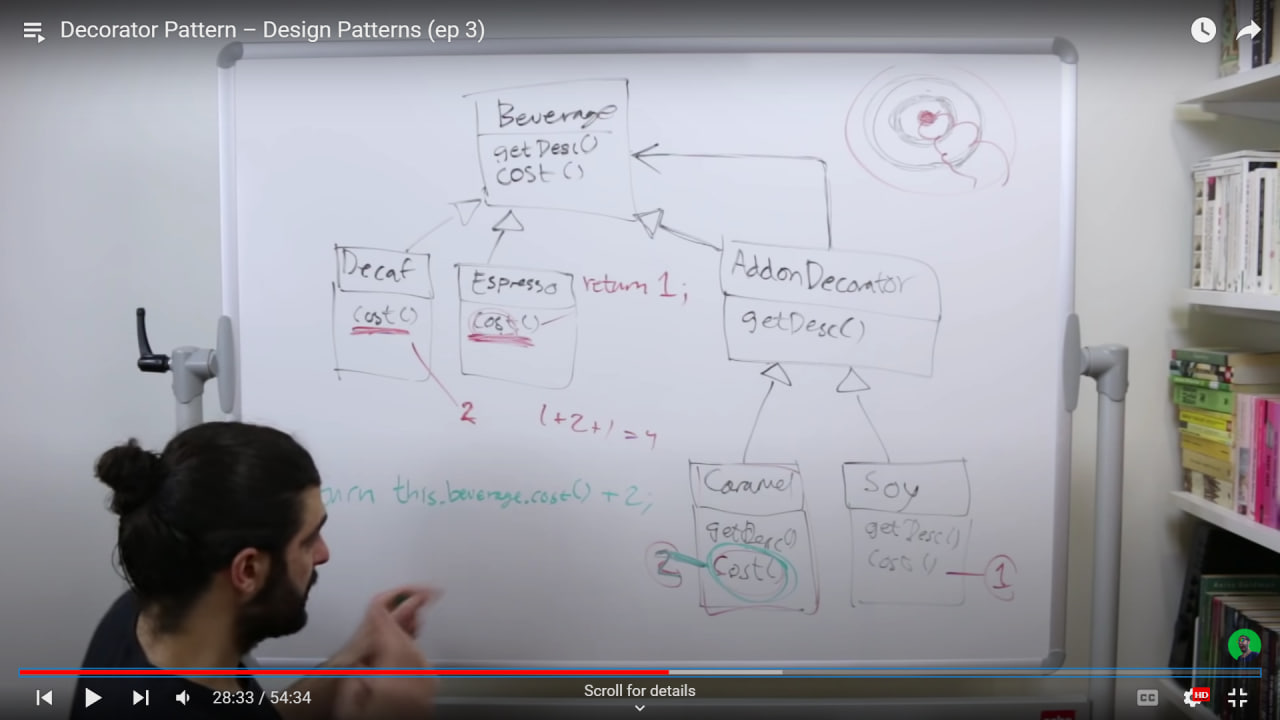 Decorator Pattern – Design Patterns (ep 3)
Beverage
getDesc()
cost()
Decaf
cost()
Espresso
cost()
return 1;
AddonDecorator
getDesc()
2
1+2+1=4
turn this.beverage.cost() + 2;
Caramel
getDesc()
cost()
2
Soy
getDesc()
cost()
1
28:33 / 54:34
Scroll for details
CC
HD